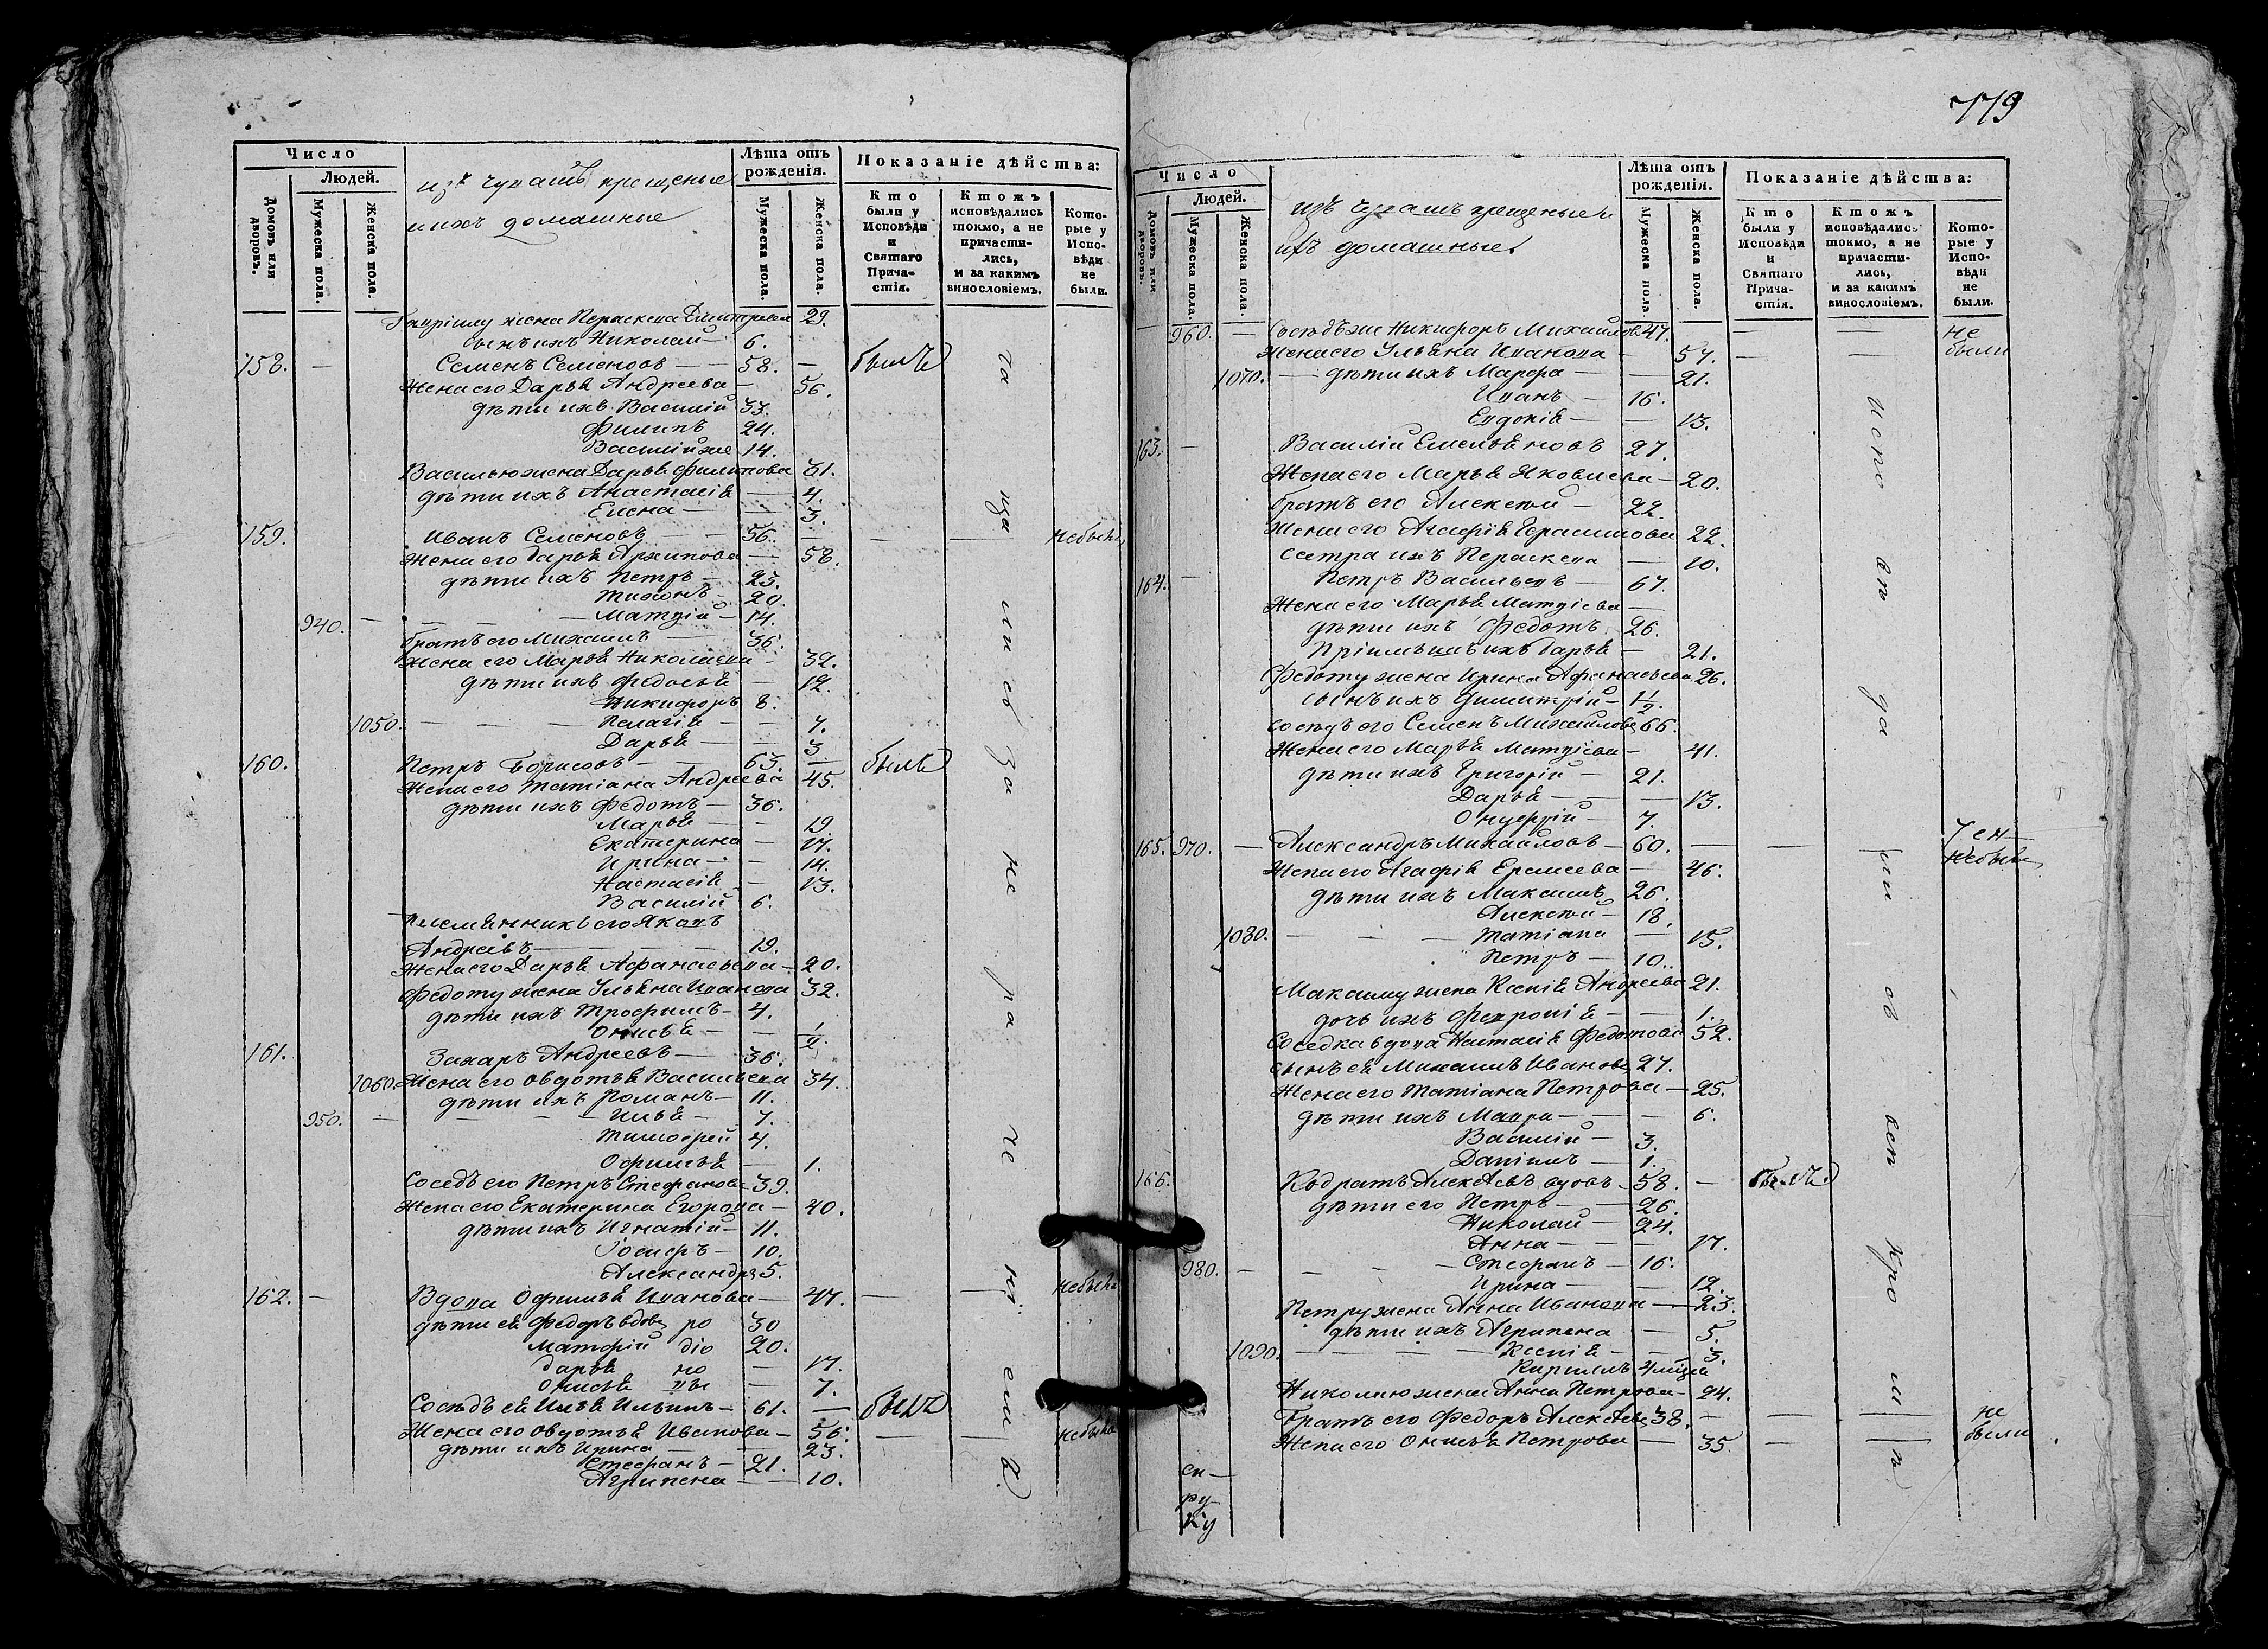 Число
Людей.
Домовъ или дворовъ.
Мужеска пола.
Женска пола.
изъ чувашъ крещеные
и ихъ домашные
Лѣта отъ рожденія.
Мужеска пола.
Женска пола.
Показаніе дѣйства:
Кто были у Исповѣди и Святаго Причастія.
Ктожъ исповѣдались токмо, а не причастились, и за какимъ винословіемъ.
Которые у Исповѣди не были.
Гаврілу жена Параскева Димитріева 29.
сынъ ихъ Николай 6.
158. — Семенъ Семеновъ — 58. — былъ
Жена его Дарья Андреева — 56.
дѣти ихъ Василій 33.
Филипъ 24.
Василій же 14.
Василью жена Дарья Филипова 31.
дѣти ихъ Анастасія — 4.
Елена — 3.
159. Иванъ Семеновъ — 56. — — — небылъ
Жена его Дарья Архипова — 58.
дѣти ихъ Петръ — 23.
Тихонъ — 20.
940. — Матвій — 14.
братъ его Михаилъ — 36.
Жена его Марья Николаева — 32.
дѣти ихъ Федосья — 12.
Никифоръ 8.
1050. — Пелагія — 7.
Дарья — 3
160. Петръ Борисовъ — 63. — былъ
Жена его Татіана Андреева 45.
дѣти ихъ Федотъ — 36.
Марья — 19
Екатерина — 17.
Ирина — 14.
Настасія — 13.
Василій 6.
племянникъ его Яковъ
Андреевъ — 19.
Жена его Дарья Афанасьева — 20.
Федоту жена Ульяна Иванова 32.
дѣти ихъ Трофимъ — 4.
Онисья —
161. Захаръ Андреевъ — 36.
1060. Жена его Овдотья Васильева 34.
дѣти ихъ Романъ — 11.
950. — Илья — 7.
Тимофей 4.
Офимья — 1.
Соседъ его Петръ Стефановъ — 39.
Жена его Екатерина Егорова — 40.
дѣти ихъ Игнатій — 11.
10.
Александръ 5.
162. — Вдова Офимья Иванова — 47. — — небыла
дѣти ея Федоръ вдовъ 30
Матфій 20.
Дарья — 17.
Онисья — 7.
Сосѣдъ ея Илья Ильинъ — 61. — былъ
Жена его Овдотья Иванова — 56. — — небыла
дѣти ихъ Ирина — 23.
Стефанъ — 21.
Агрипена — 10.
779
Число
Людей.
Домовъ или дворовъ.
Мужеска пола.
Женска пола.
изъ чувашъ крещеные и
ихъ домашные
Лѣта отъ рожденія.
Мужеска пола
Женска пола.
Показаніе дѣйства:
Кто были у Исповѣди и Святаго Причастія.
Ктожъ исповѣдались токмо, а не причастились, и за какимъ винословіемъ.
Которые у Исповѣди не были.
960. — Сосѣдъ же Никифоръ Михайловъ 47. — — не
Жена его Ульяна Иванова — 57. — — были
1070. — дѣти ихъ Марфа — 21.
Иванъ — 16.
Евдокія — 13.
163. — Василій Емельяновъ 27.
Жена его Марья Яковлева — 20.
братъ его Алексей — 22.
Жена его Агафія Герасимова 22.
сестра ихъ Параскева — 10.
164. — Петръ Васильевъ — 67.
Жена его Марья Матвіева —
дѣти ихъ Федотъ 26.
Пріимышъ ихъ Дарья — 21.
Федоту жена Ирина Афанасьева 26.
сынъ ихъ Димитрій — 1 1/2.
сосѣдъ его Семенъ Михайловъ 66.
Жена его Марья Матвіева — 41.
дѣти ихъ Григорій — 21.
Дарья — 13.
Онуфрій — 7.
165. 970. — Александръ Михайловъ — 60. — — небылъ
Жена его Агафія Еремеева — 46.
дѣти ихъ Максимъ 26.
Алексей — 18.
1080. — Татіана — 15.
Петръ — 10.
Максиму жена Ксенія Андреева 21.
дочь ихъ Февронія — 1.
Соседка вдова Настасія Федотова 52.
сынъ ея Михаилъ Ивановъ 27.
Жена его Татіана Петрова — 25.
дѣти ихъ Мавра — 6.
Василій — 3.
Данилъ — 1.
166. Кодратъ Алексѣевъ вдовъ — 58. — былъ
дѣти его Петръ — 26.
Николай — 24.
Анна — 17.
980. — Стефанъ — 16.
Ирина — 12.
Петру жена Анна Иванова — 23.
дѣти ихъ Агрипена — 5.
1090. — Ксенія — 3.
Кирилъ
Николаю жена Анна Петрова — 24.
Братъ его Федоръ Алексѣевъ 38. — — — не
Жена его Онисья Петрова — 35. — — были